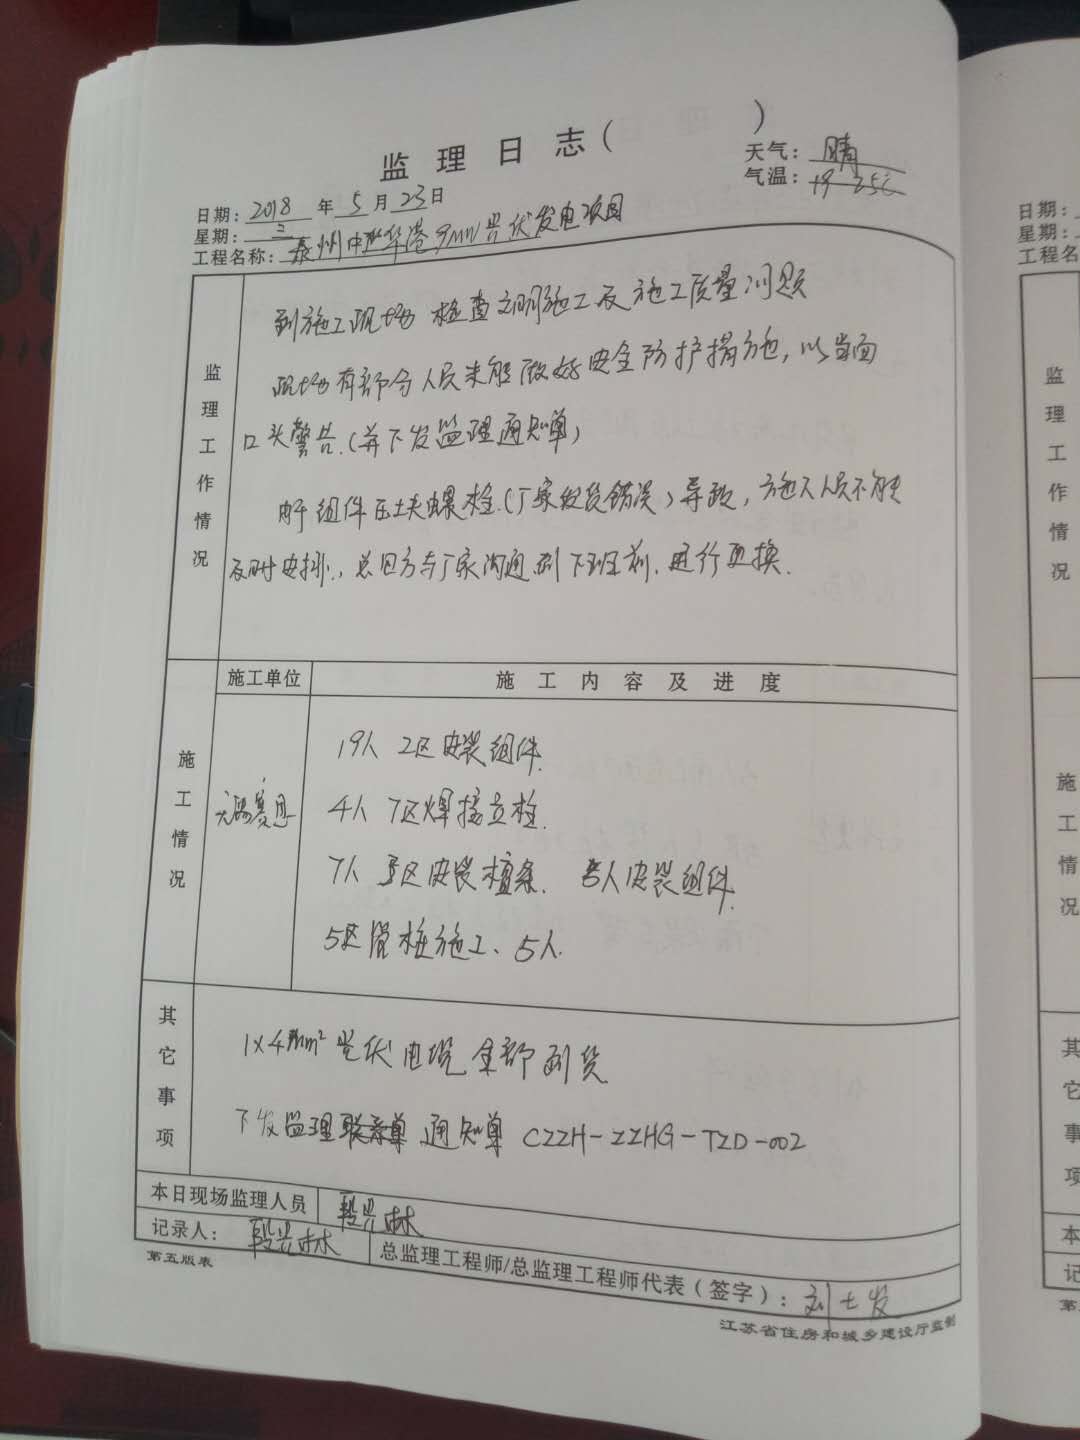 监理日志( )
天气: 晴
气温: 19-25℃
日期: 2018年5月23日
星期: 三
工程名称: 泰州中华港9MW光伏发电项目
监理工作情况
到施工现场 检查文明施工及施工质量问题
现场有部分人员未能做好安全防护措施, 以当面
口头警告.(并下发监理通知单)
由于组件压块螺栓.(厂家发货错误)导致, 施工人员不能
及时安排., 总包方与厂家沟通到下班前. 进行更换.
施工单位
施工内容及进度
施工情况
无锡赛恩
19人 2区安装组件.
4人 7区焊接立柱.
7人 区安装檩条. 5人安装组件.
5区管桩施工、5人.
其它事项
1×4mm² 光伏电缆 全部到货
下发监理通知单 CZZH-ZZHG-TZD-002
本日现场监理人员 段兴林
记录人: 段兴林
总监理工程师/总监理工程师代表(签字): 刘士发
第五版表
江苏省住房和城乡建设厅监制
日期:
星期:
工程名
监理工作情况
施工情况
其它事项
本
记
第